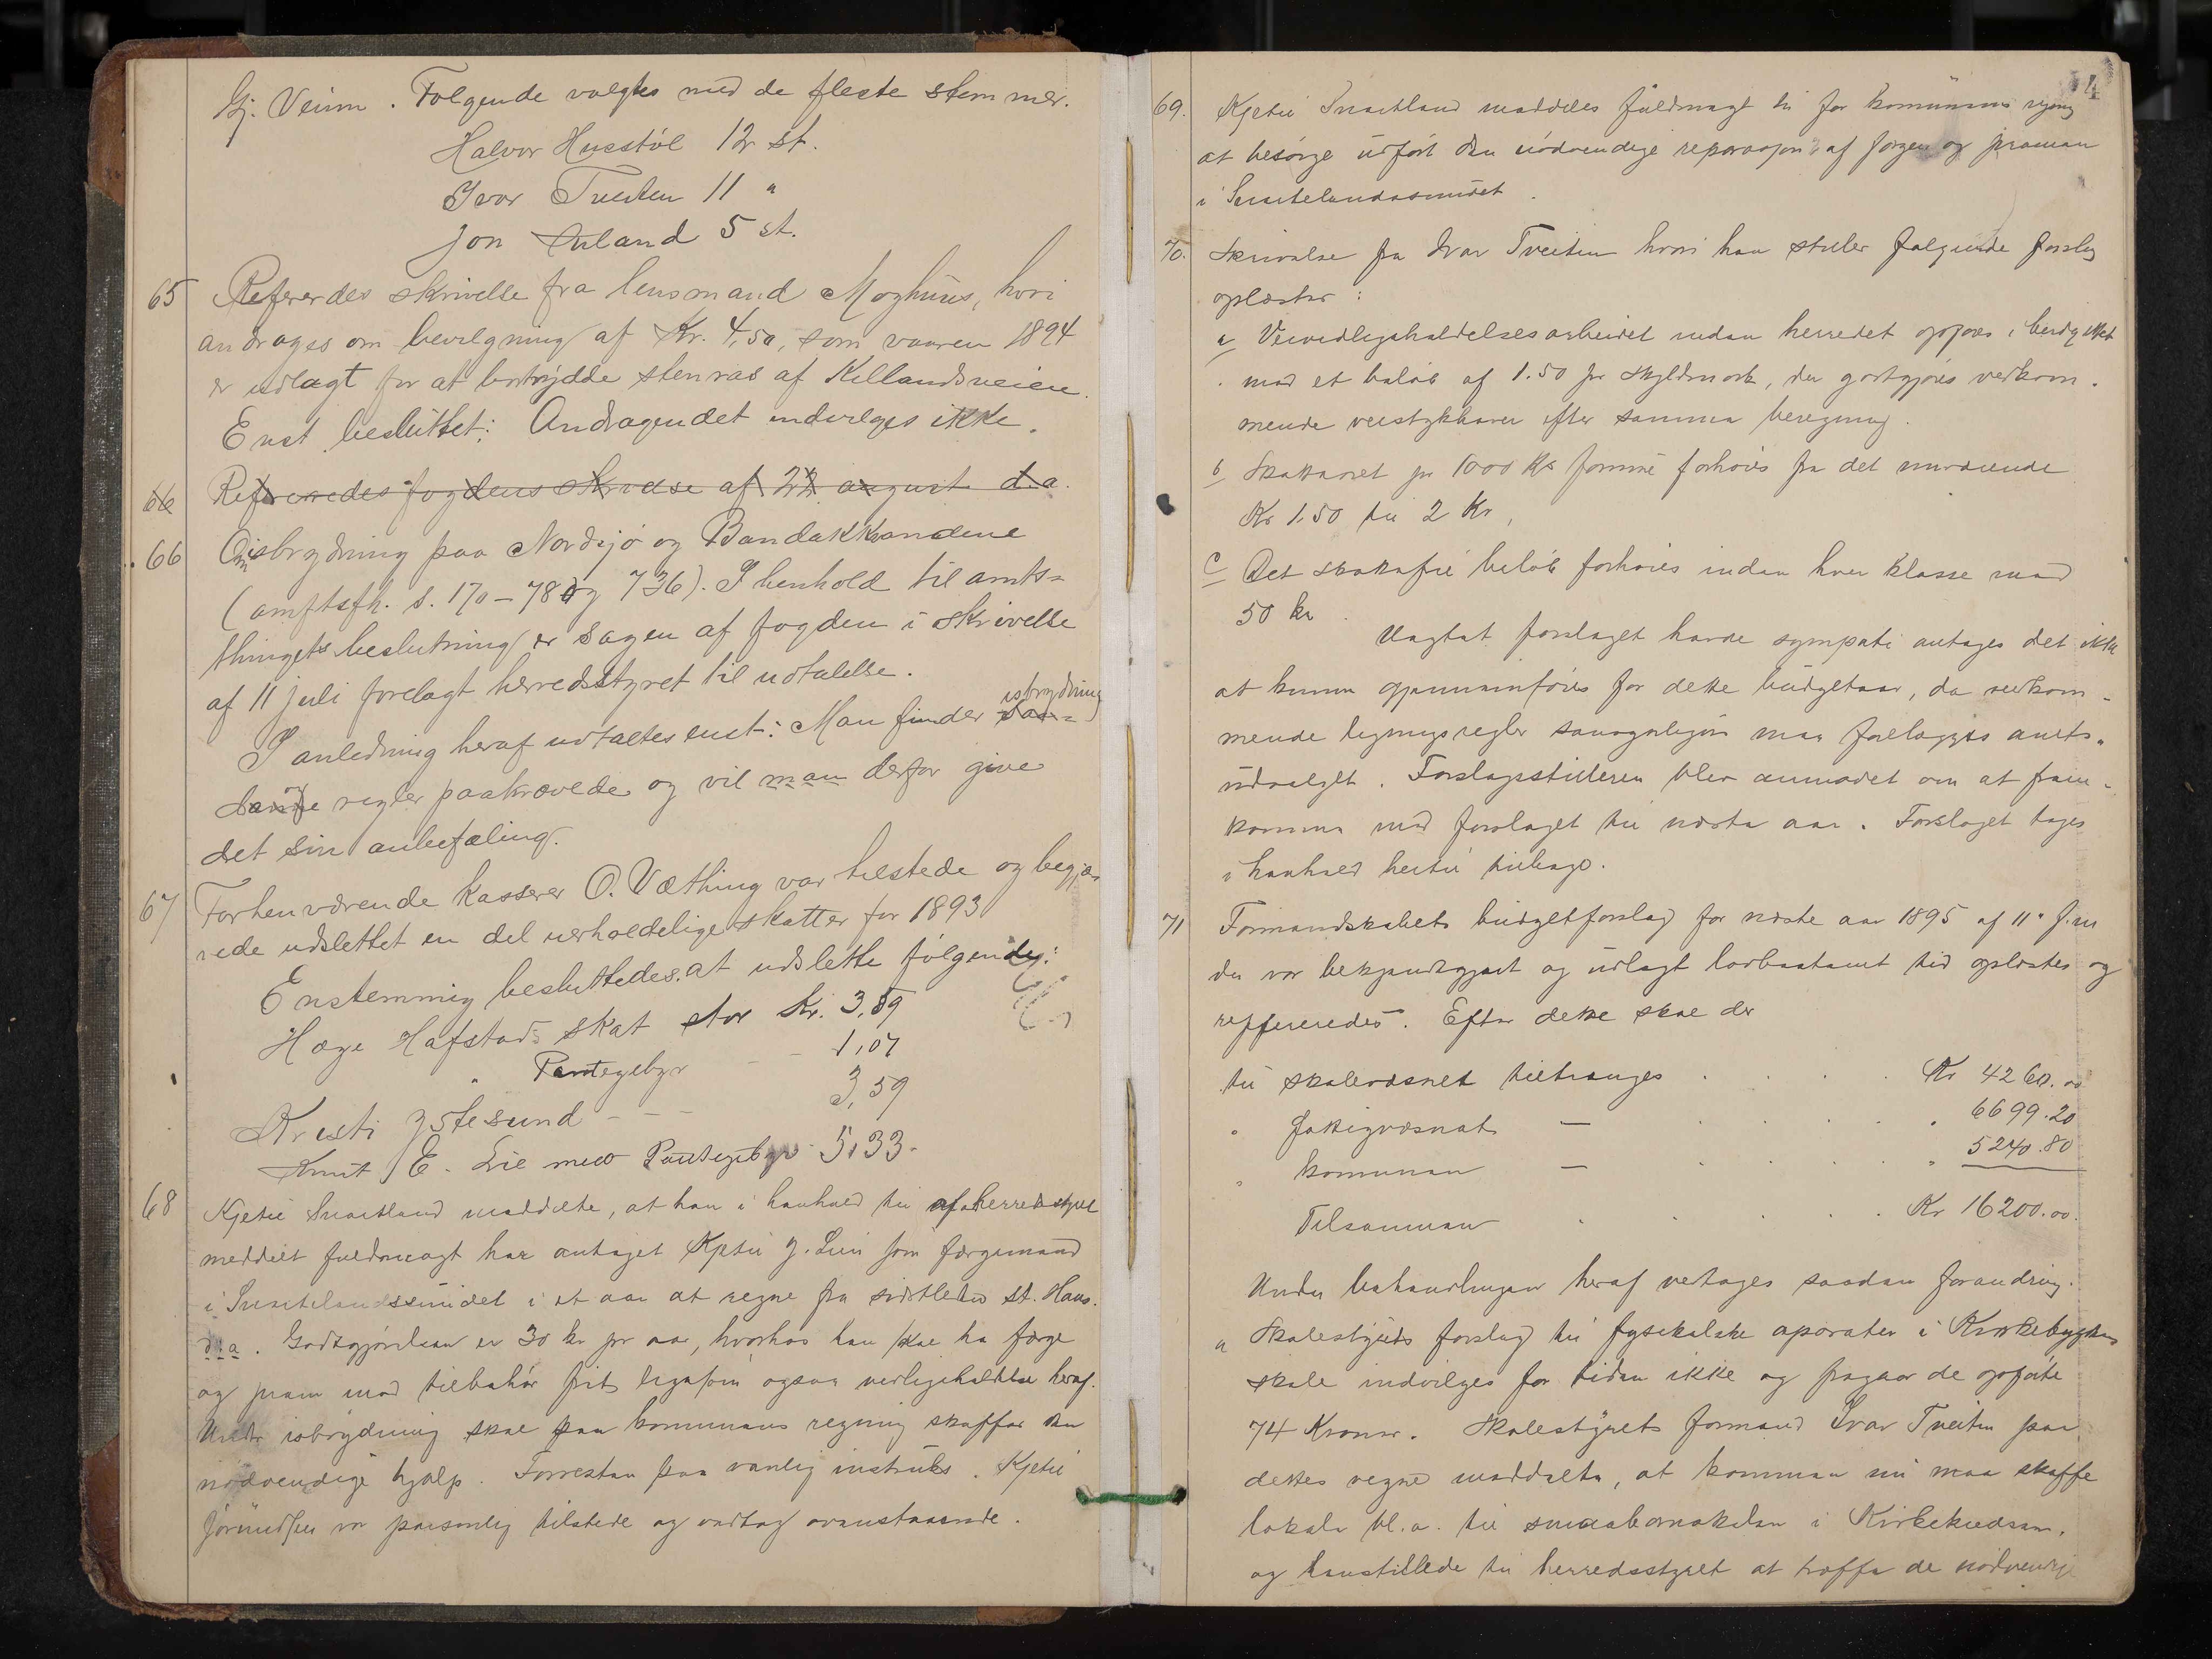 Gj. Veum. Følgende valgtes med de fleste stemmer.
Halvor Husstøl 12 st.
Ivar Tveiten 11 "
Jon Øiland 5 st.
65 Refererdes skrivelse fra lensmand Moghuus, hvori
andrages om bevilgning af Kr. 4,50, som vaaren 1894
er udlagt for at bortrydde stenras af Killandsveien.
Enst. besluttet: Andragendet indvilges ikke.
66 Refereredes fogdens skrivelse af 22 august d.a.
66 Om isbrydning paa Nordsjø og Bandakkanalene
(amtsfh. s. 170-78 og 736). I henhold til amts=
thingets beslutning er sagen af fogden i skrivelse
af 11 juli forelagt herredsstyret til udtalelse.
I anledning heraf udtaltes enst.: Man finder isbrydning
regler paakrævede og vil man derfor give
det sin anbefaling.
67 Forhenværende kasserer O. Væthing var tilstede og begjæ
rede udslettet en del uerholdelige skatter for 1893
Enstemmig besluttedes at udslette følgende:
Hæge Hafstads skat stor Kr. 3,59
" Pantegebyr - - 1,07
Kristi Ystesund - - - 3,59
Knut E. Lie med Pantegebyr 5,33.
68 Kjetil Snartland meddelte, at han i henhold til af herredsstyret
meddelt fuldmagt har antaget Kjetil J. Lien som færgemand
i Snartelandssundet i et aar at regne fra sidstleden St. Hans.
d.a. Godtgjørelsen er 30 kr pr aar, hvorhos han skal ha færge
og pram med tilbehør frit ligesom ogsaa vedligeholdelse heraf.
Under isbrydning skal paa kommunens regning skaffes den
nødvendige hjælp. Forresten paa vanlig instruks. Kjetil
Jørundsen var personlig tilstede og vedtog ovenstaaende.
4
69. Kjetil Snartland meddeles fuldmagt til for kommunens regning
at besørge udført den nødvendige reparasjon af færgen og prammen
i Snartelandssundet.
70. Skrivelse fra Ivar Tveiten hvori han stiller følgende forslag
oplæstes:
a Veivedligeholdelsesarbeidet inden herredet opføres i budgettet
med et beløb af 1.50 pr skyldmark, der godtgjøres vedkom-
mende veistykkhaver efter samme beregning.
b Skatøret pr 1000 Kr formue forhøies fra det nuværende
Kr 1,50 til 2 Kr,
c Det skattefrie beløb forhøies inden hver klasse med
50 kr.
Uagtet forslaget havde sympati antages det ikke
at kunne gjennemføres for dette budgetaar, da vedkom-
mende ligningsregler sandsynligvis maa forelægges amts-
udvalget. Forslagsstilleren blev anmodet om at frem-
komme med forslaget til næste aar. Forslaget toges
i henhold hertil tilbage.
71 Formandskabets budgetforslag for næste aar 1895 af 11te f.m.
der var bekjendtgjort og udlagt lovbestemt tid oplæstes og
reffereredes. Efter dette skal der
til skolevæsnet tiltrænges . . . . Kr 4260.00
" fattigvæsnet — . . . . " 6699.20
" kommunen — . . . . " 5240.80
Tilsammen . . . . Kr 16200.00.
Under behandlingen heraf vedtages saadan forandring.
a Skolestyrets forslag til fysikalske aparater i Kirkebygdens
skole indvilges for tiden ikke og fragaar de opførte
74 Kroner. Skolestyrets formand Ivar Tveiten paa
dettes vegne meddelte, at kommunen nu maa skaffe
lokale bl.a. til smaabarnskolen i Kirkekredsen,
og henstillede til herredsstyret at træffe de nødvendige